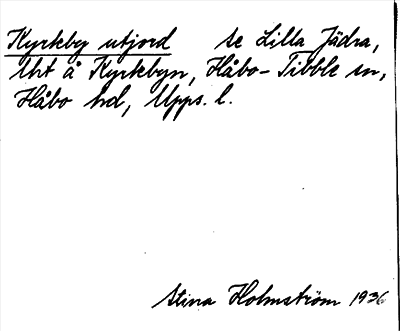 Kyrkeby utjord se Lilla Jädra,
Urt å Kyrkebyn, Håbo-Tibble sn,
Håbo hd, Upps. l.
Stina Holmström 1936